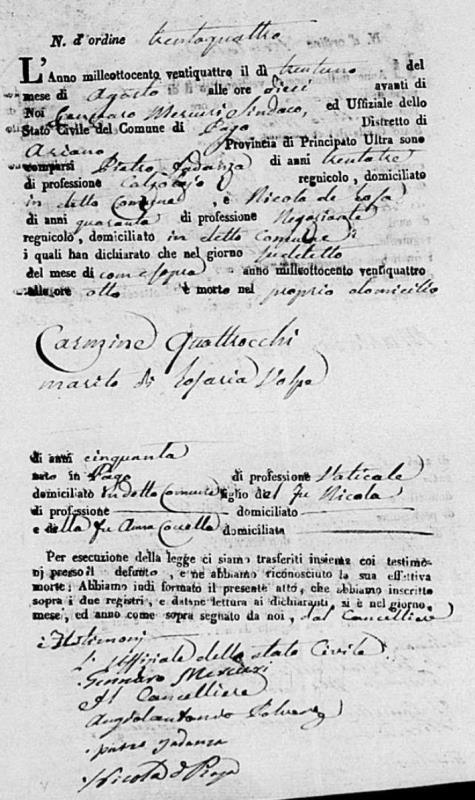 N. d'ordine trentaquattro
L'Anno milleottocento ventiquattro il dì trentuno del
mese di Agosto alle ore dieci avanti di
Noi Gennaro Mercuri Sindaco, ed Uffiziale dello
Stato Civile del Comune di Pago Distretto di
Ariano Provincia di Principato Ultra sono
comparsi Pietro Iadanza di anni trentatre
di professione Calzolajo regnicolo, domiciliato
in detto Comune, e Nicola de Rosa
di anni quaranta di professione Negoziante
regnicolo, domiciliato in detto Comune
i quali han dichiarato che nel giorno suddetto
del mese di come sopra anno milleottocento ventiquattro
alle ore otto è morto nel proprio domicilio
Carmine Quattrocchi
marito di Rosaria Volpe
di anni cinquanta
nato in Pago di professione Vaticale
domiciliato in detto Comune figlio del fu Nicola
di professione domiciliato
e della fu Anna domiciliata
Per esecuzione della legge ci siamo trasferiti insieme coi testimo-
nj presso il defunto, e ne abbiamo riconosciuto la sua effettiva
morte; Abbiamo indi formato il presente atto, che abbiamo inscritto
sopra i due registri, e datane lettura ai dichiaranti, si è nel giorno,
mese, ed anno come sopra segnato da noi, dal Cancelliere
e Testimonj
L'Uffiziale dello stato Civile
Gennaro Mercuri
Il Cancelliere
Angiolantonio
pietro Iadanza
Nicola d Rosa